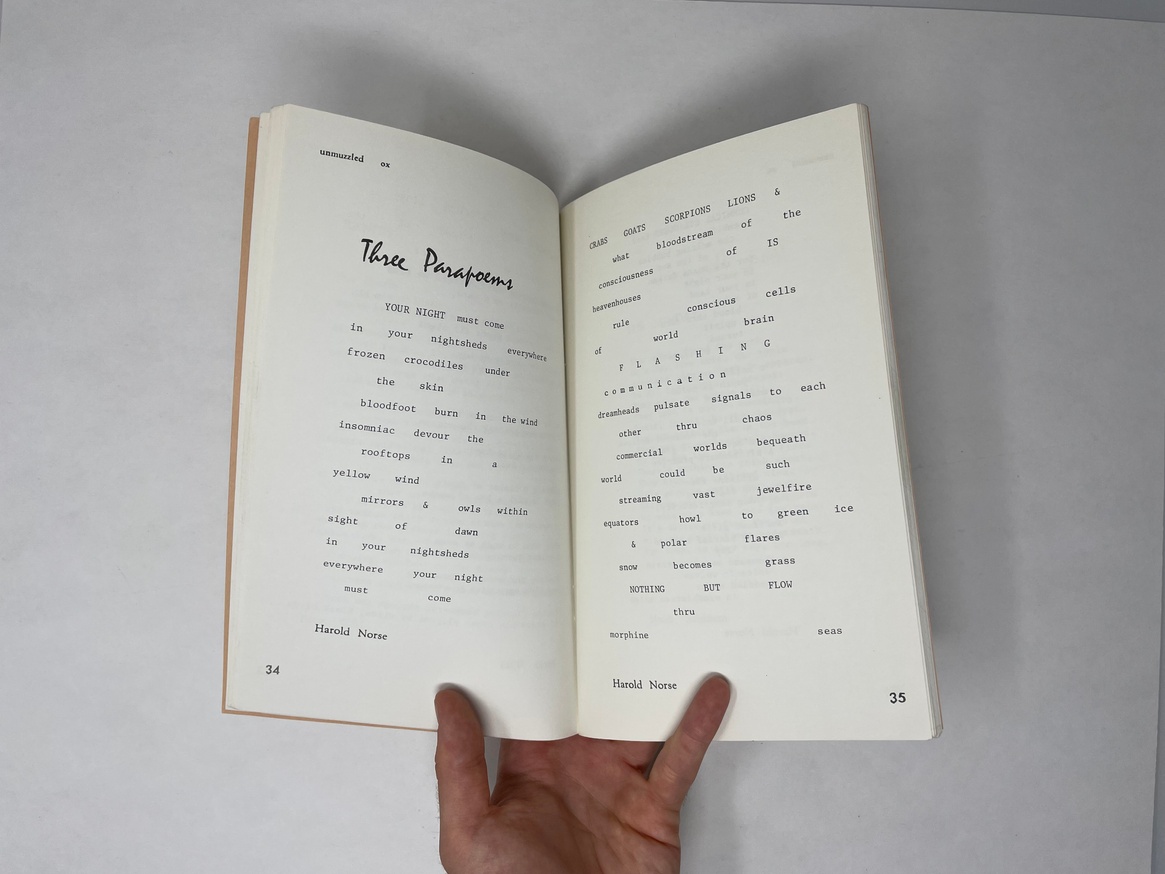 unmuzzled ox
Three Parapoems
YOUR NIGHT must come
in your nightsheds everywhere
frozen crocodiles under
the skin
bloodfoot burn in the wind
insomniac devour the
rooftops in a
yellow wind
mirrors & owls within
sight of dawn
in your nightsheds
everywhere your night
must come
Harold Norse
34
CRABS GOATS SCORPIONS LIONS &
what bloodstream of the
consciousness of IS
heavenhouses
rule conscious cells
of world brain
F L A S H I N G
c o m m u n i c a t i o n
dreamheads pulsate signals to each
other thru chaos
commercial worlds bequeath
world could be such
streaming vast jewelfire
equators howl to green ice
& polar flares
snow becomes grass
NOTHING BUT FLOW
thru
morphine seas
Harold Norse
35